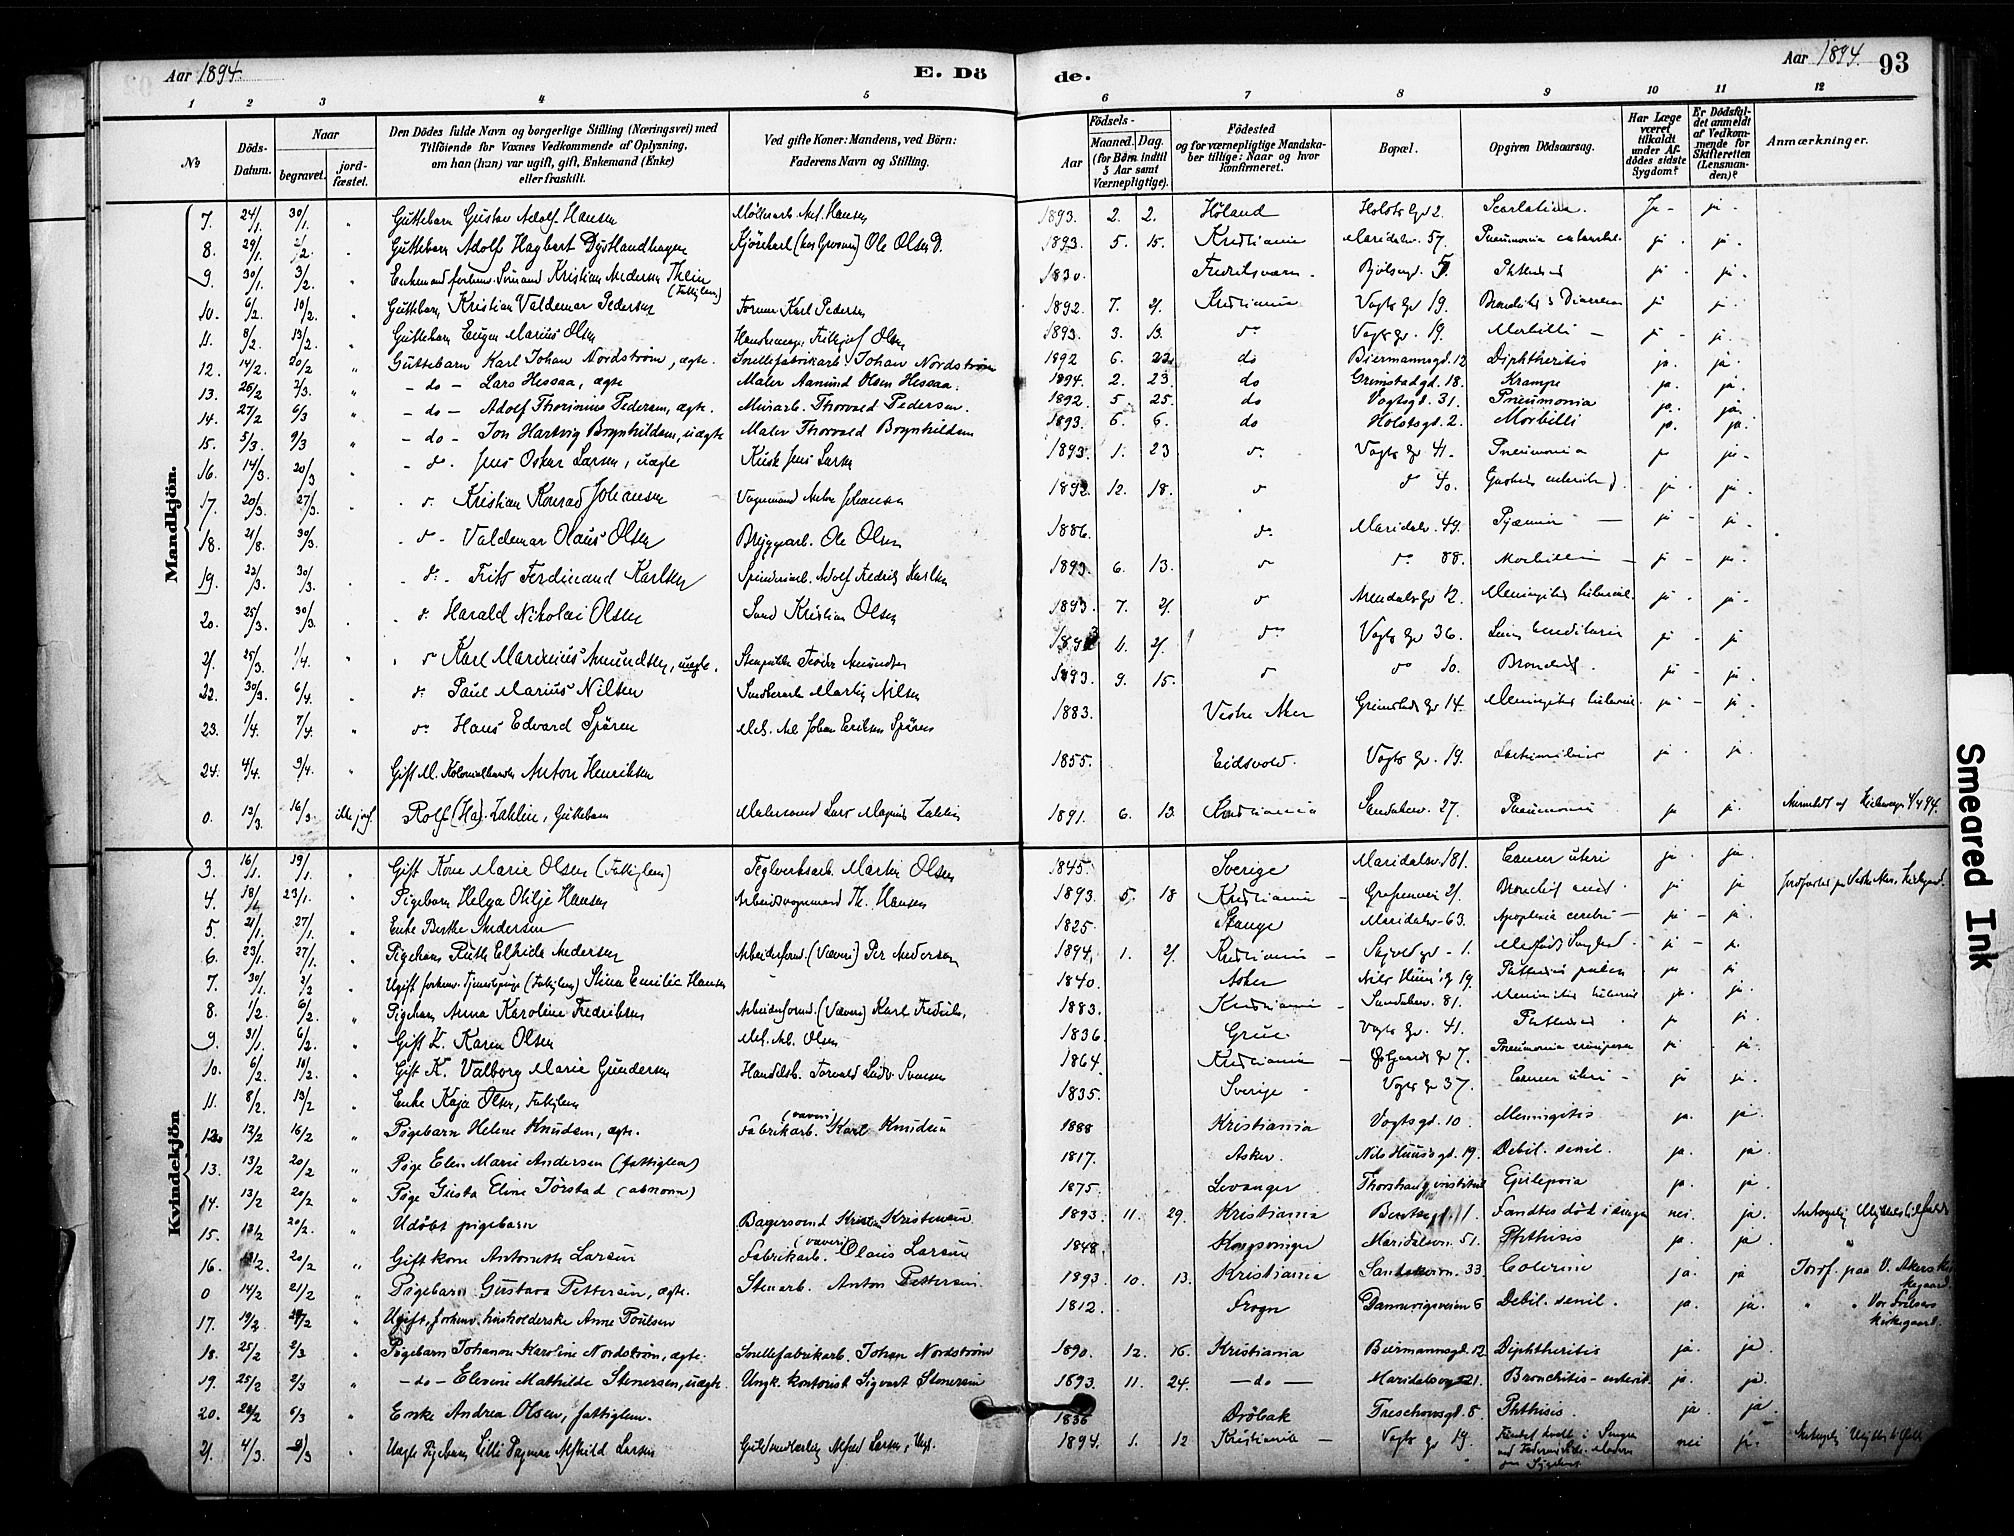 Aar 1894.
E. Dö
de.
Aar 1894.
93
1 2 3 4 5 6 7 8 9 10 11 12
No
Döds-Datum.
Naar
begravet.
jord-fæstet.
Den Dödes fulde Navn og borgerlige Stilling (Næringsvei) med
Tilföiende for Voxnes Vedkommende af Oplysning,
om han (hun) var ugift, gift, Enkemand (Enke)
eller fraskilt.
Ved gifte Koner: Mandens, ved Börn:
Faderens Navn og Stilling.
Födsels-
Aar
Maaned. Dag.
(for Börn indtil
5 Aar samt
Værnepligtige).
Födested
og for værnepligtige Mandska-
ber tillige: Naar og hvor
konfirmeret.
Bopæl.
Opgiven Dödsaarsag.
Har Læge
været
tilkaldt
under Af-
dödes sidste
Sygdom?
Er Dödsfal-
det anmeldt
af Vedkom-
mende for
Skifteretten
(Lensman-
den)?
Anmærkninger.
Mandkjön.
7. 24/1. 30/1. " Guttebarn Gustav Adolf Hansen Möllerarb. Ant. Hansen 1893. 2. 2. Höland Holsts gd 2. Scarlatina. Ja - ja -
8. 29/1. 2/2. Guttebarn Adolf Hagbart Dystlandhagen Ole Olsen D. 1893. 5. 15. Kristiania Maridalsv. 57. Pneumonia catarrhal. ja. ja.
9. 30/1. 3/2. " Enkemand forhenv. Sömand Kristian Andersen Thein (Fattiglem) 1830. Fredriksværn. Bjölsengd 5. Phthisis ja. ja.
10. 6/2. 10/2. " Guttebarn Kristian Valdemar Pedersen Former Karl Pedersen 1892. 7. 21. Kristiania Vogts gd 19. ja ja.
11. 8/2. 13/2. " Guttebarn Eugen Marius Olsen Fritkjof Olsen 1893. 3. 13. do Vogts gd. 19. Morbilli - ja - ja.
12. 14/2. 20/2 " Guttebarn Karl Johan Nordström, ægte. Snellefabrikarb. Johan Nordström 1892 6. 22. do Biermannsgd. 12 Diphtheritis ja. ja.
13. 26/2 2/3. " - do - Lars Hessaa, ægte Maler Aamund Olsen Hessaa. 1894. 2. 23. do Grimstadgd. 18. Krampe ja. ja.
14. 27/2 6/3 " - do - Adolf Thorinius Pedersen, ægte. Murarb. Thorvald Pedersen. 1892. 5. 25. do Vogtsgd. 31. Pneumonia ja. ja.
15. 5/3. 9/3 " - do - Jon Hartvig Brynhildsen, uægte Maler Thorvald Brynhildsen 1893. 6. 6. do Holstsgd. 2. Morbilli ja. ja.
16. 14/3. 20/3 " - do. Jens Oskar Larsen, uægte Kusk Jens Larsen 1893. 1. 23 do. Vogts gd 41. Pneumonia ja ja -
17. 20/3. 27/3. " Kristian Konrad Johansen Vognmand Anton Johansen 1892. 12. 18. do do 40. ja. ja.
18. 21/8. 30/3. Valdemar Olaus Olsen Bryggearb. Ole Olsen 1886. do. Maridalsv. 49. Pyæmia - ja - ja.
19. 22/3. 30/3. Frits Ferdinand Karlsen Spinderiarb. Adolf Fredrik Karlsen 1893. 6. 13. do do 88. Morbilli - ja - ja.
20. 25/3. 30/3. do. Harald Nikolai Olsen Kristian Olsen 1893. 7. 21. do Arendalsgd 12. Meningitis tubercul. ja - ja -
21. 25/3. 1/4. " do Karl Marinius Amundsen, uægte. Amundsen 4. 21. do Vogts gd 36. ja - ja
22. 30/3. 6/4. " do. Paul Marius Nilsen Martin Nilsen 1893. 9. 15. do do 10. Bronchit. ja - ja
23. 1/4. 7/4. " do. Hans Edvard Spören Mek. Arb. Johan Eriksen Spören 1883. Vestre Aker Grimstads gd 14. Meningitis tubercul. ja - ja
24. 4/4. 9/4. " Gift M. Kolonialhandler Anton Henriksen 1855. Eidsvold. Vogts gd. 19. ja. ja.
0. 13/3. 16/3. ikke jordf. Rolf (Ha). Zahlin, Guttebarn Malersvend Lars Magnus Zahlin 1891. 6. 13. Kristiania Sandakerv. 27. Pneumoni ja ja. Anmeldt af Kirkeverge 4/4 94.
Kvindekjön
3. 16/1. 19/1. " Gift Kone Marie Olsen (Fattiglem) Teglverksarb. Martin Olsen 1845. Sverige Maridalsv. 181. Cancer uteri ja. ja.
4. 18/1 23/1. " Pigebarn Helga Otilje Hansen Arbeidsvognmand Th. Hansen 1893. 5. 18 Kristiania - 21. Bronchit ja ja Jordfæstet paa Vestre Akers Kirkegaard.
5. 21/1. 27/1. " Enke Berthe Andersen 1825. Stange Maridalsv - 63. Apoplexia cerebri - ja - ja.
6. 23/1. 27/1. " Pigebarn Ruth Elfrida Andersen Arbeidsformd. (Væveri) Per Andersen 1894. 1. 21. Kristiania - 1. Medfödt Svaghed. ja - ja.
7. 30/1. 2/2 " Ugift forhenv. Tjenestepige (Fattiglem) Stina Emilie Hansen 1840. Asker Nils Huus' gd 19. ja ja.
8. 1/2. 6/2. " Pigebarn Anna Karoline Fredriksen Arbeidsformd. (Væveri) Karl Fredriks. 1883. Kristiania - Sandakerv. 81. Meningitis tubercul. ja. ja
9. 31/1. 6/2 " Gift K. Karen Olsen Mek. Arb. Olsen 1836. Grue Vogts gd. 41. Phthisis ja ja.
10. 6/2. 10/2. " Gift K. Valborg Marie Gundersen Handelsb. Torvald Ludv. Svensen 1864. Kristiania - 7. Pneumonia crouposa ja - ja.
11. 8/2. 13/2 " Enke Kaja Olsen, Fattiglem 1835. Sverige Vogts gd 37. Cancer uteri - ja ja.
12. 13/2 16/2 " Pigebarn Helene Knudsen, ægte. Fabrikarb. (væveri) Karl Knudsen 1888 Kristiania Vogtsgd. 10. Meningitis ja. ja.
13. 13/2 20/2 " Pige Elen Marie Andersen (fattiglem) 1817. Asker. Nils Huusgd. 19. Debil. senil. ja. ja.
14. 13/2 20/2 " Pige Gusta Eline Törstad (abnorm) 1875. Levanger Thorshaug institut Epilepsia ja. ja.
15. 13/2 20/2. " Udöbt pigebarn Bagersvend Kristian Kristensen 1893. 11. 29. Kristiania 11. Fandtes död i sengen nei. ja.
16. 13/2. 20/2 " Gift kone Antonette Larsen Fabrikarb. (væveri) Olaus Larsen 1848. Kongsvinger Maridalsvn. 51. Phthisis ja. ja
0 14/2 21/2 " Pigebarn Gustava Pettersen, ægte. Stenarb. Anton Pettersen. 1893. 10. 13. Kristiania Sandakervn. 33. Colerine ja. ja Jordf. paa V. Akers Kirkegaard
17. 19/2 24/2 " Ugift, forhenv. husholderske Anne Poulsen 1812. Frogn Dannevigsveien 6 Debil. senil. ja. ja. " " Vor Frelsers kirkegaard.
18. 25/2 2/3 " Pigebarn Johanne Karoline Nordström, ægte. Snellefabrikarb. Johan Nordström 1890. 12. 16. Kristiania Biermannsgd. 12 Diphtheritis ja. ja.
19. 25/2 2/3 " - do - Elevine Mathilde Stenersen, uægte. Ungk. kontorist Sigvart Stenersen 1893. 11. 24. - do - Maridalsvn 21. Bronchitis - enterit. ja. ja.
20. 28/2 6/3 " Enke Andrea Olsen, fattiglem. 1836 Dröbak Treschowsgd. 8. Phthisis. ja ja.
21. 4/3. 9/3 " Uægte Pigebarn Lilli Dagmar Alfhild Larsen Alfred Larsen, Ungk. 1894. 1. 12 Kristiania - Vogts gd 19. nei ja.
Smeared Ink